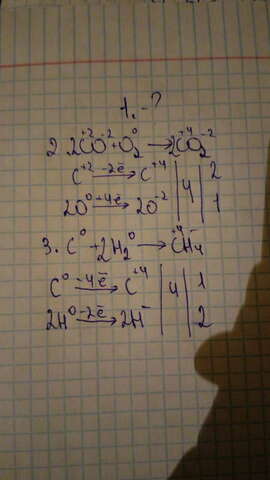 1. - ?
2. 2C⁺²O⁻² + O₂⁰ → 2C⁺⁴O₂⁻²
C⁺² -2ē→ C⁺⁴ | 4 | 2
2O⁰ +4ē→ 2O⁻² | 1
3. C⁰ + 2H₂⁰ → C⁺⁴H₄⁻
C⁰ -4ē→ C⁺⁴ | 4 | 1
2H⁰ -2ē→ 2H⁻ | 2